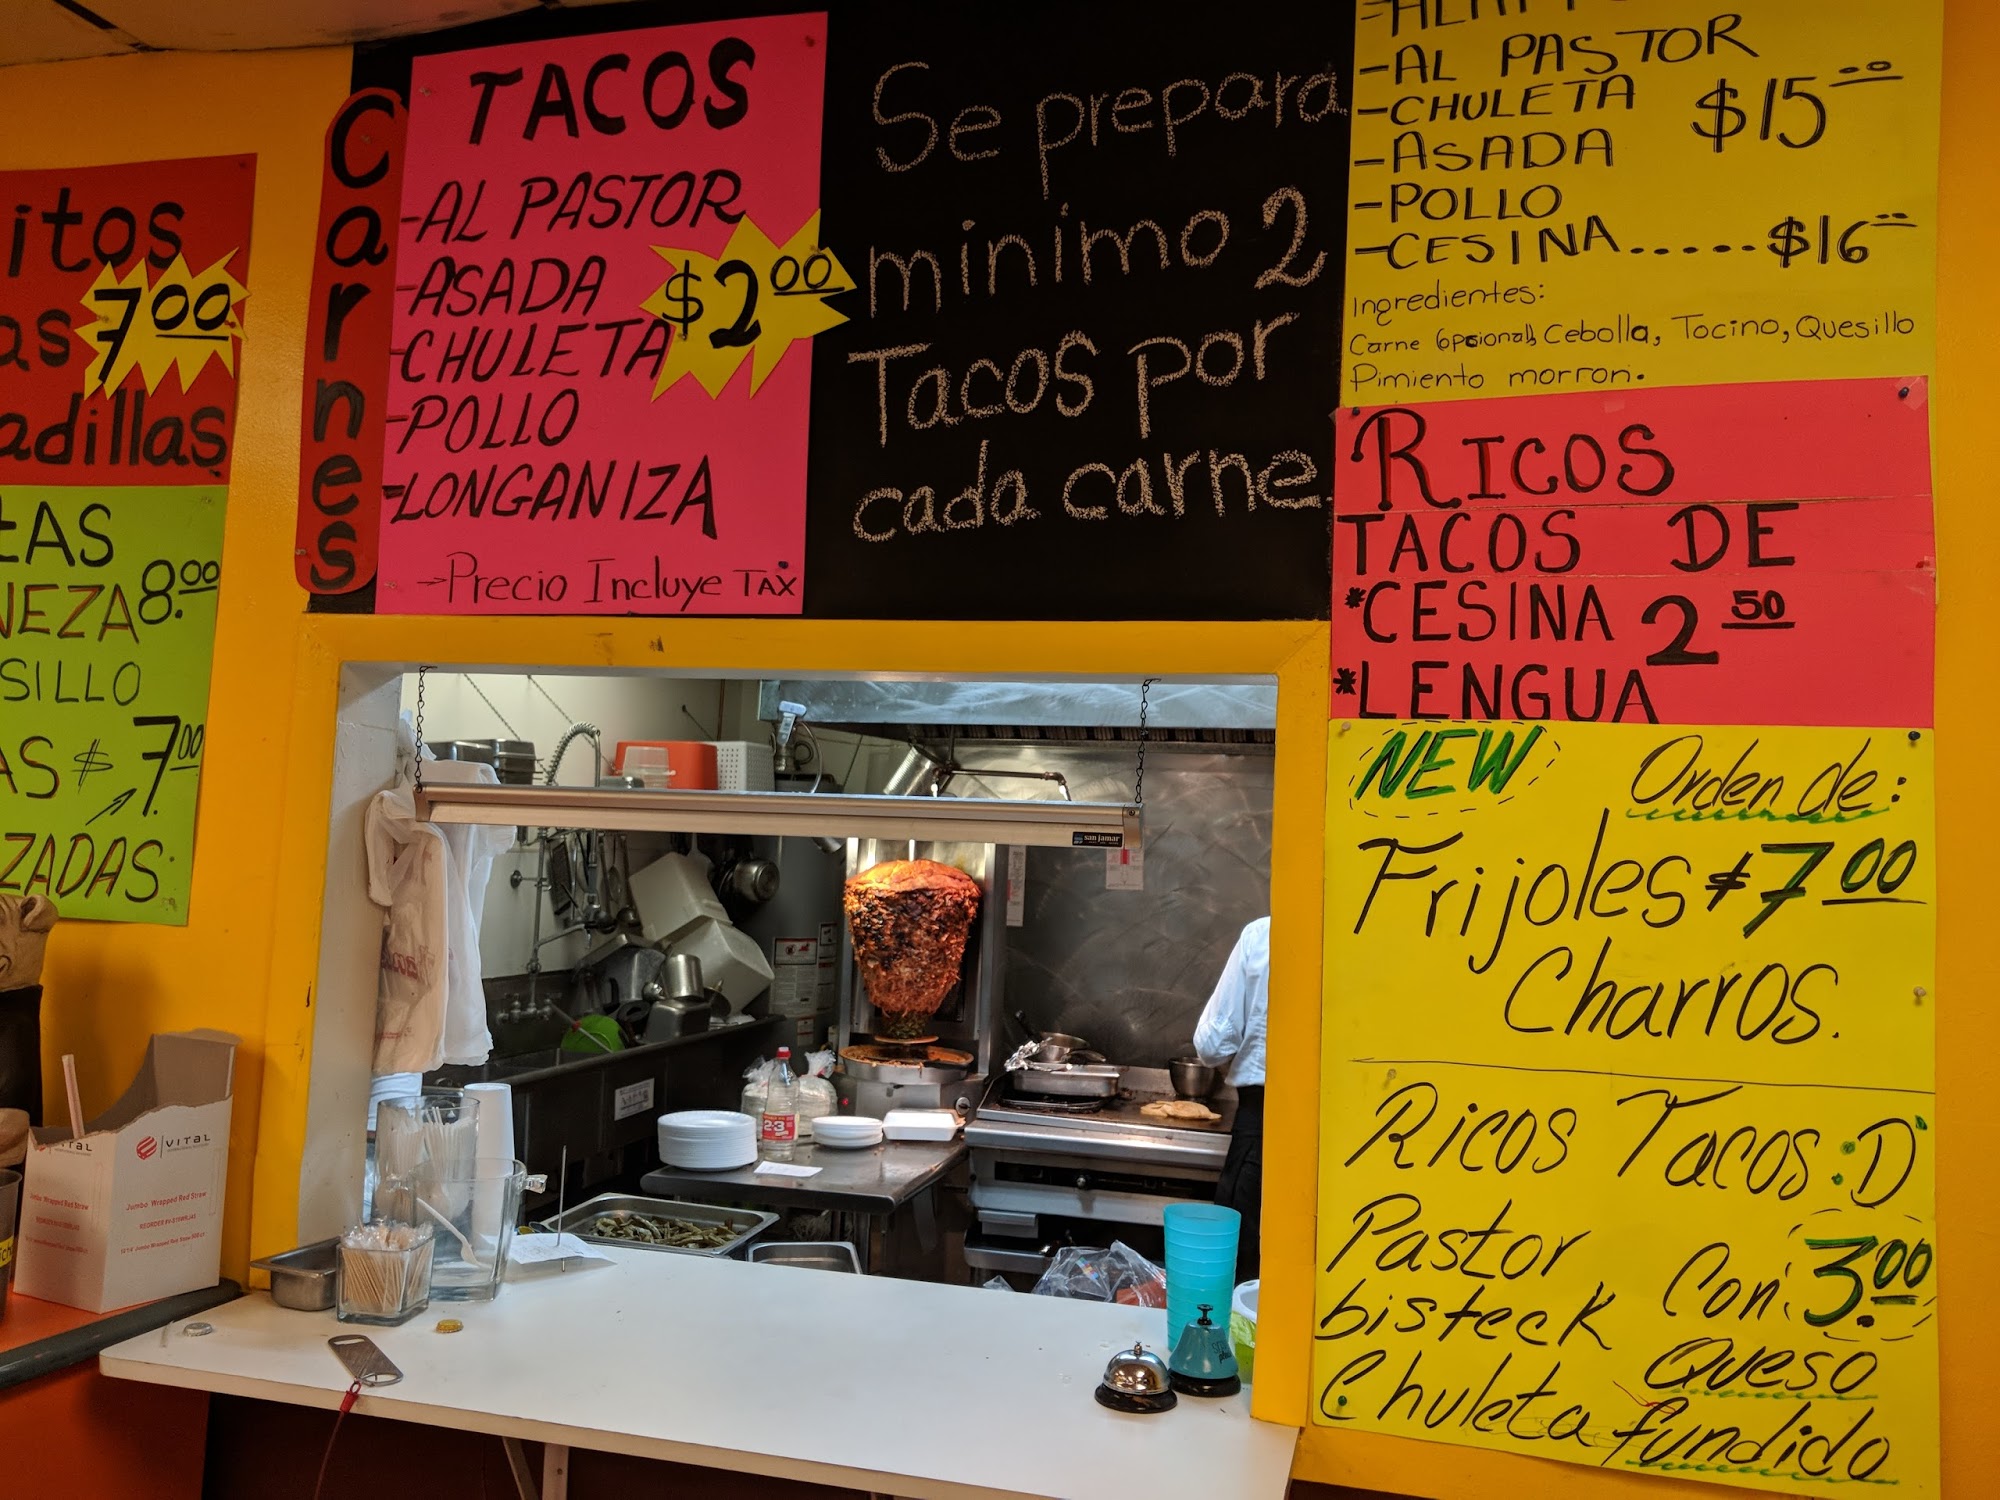 itos
as 7.00
adillas
tAS
NEZA 8.00
SILLO
AS $ 7.00
ZADAS:
Carnes
TACOS
-AL PASTOR
-ASADA
-CHULETA
-POLLO
-LONGANIZA
$2.00
→Precio Incluye TAX
Se prepara
minimo 2
Tacos por
cada carne.
-AL PASTOR
-CHULETA $15.00
-ASADA
-POLLO
-CESINA.....$16.00
Ingredientes:
Carne (opcional), Cebolla, Tocino, Quesillo
Pimiento morron.
RICOS
TACOS DE
*CESINA 2.50
*LENGUA
NEW Orden de:
Frijoles $7.00
Charros.
Ricos Tacos:D'
Pastor Con: 3.00
bisteck Queso
Chuleta fundido
san jamar
2.3
VITAL
Jumbo Wrapped Red Straw